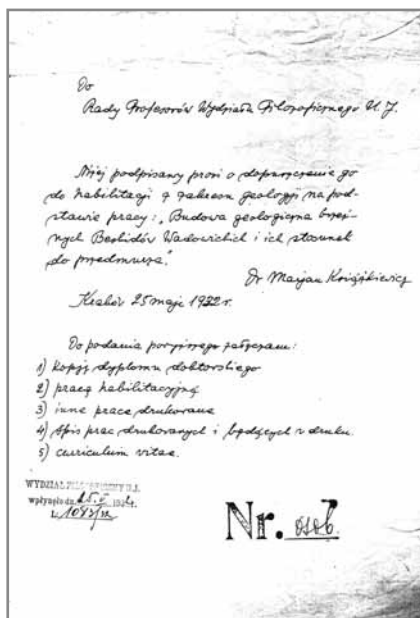 Do
Rady Profesorów Wydziału Filozoficznego U. J.
Niżej podpisany prosi o dopuszczenie go
do habilitacji z zakresu geologji na pod-
stawie pracy: „Budowa geologiczna brzeż-
nych Beskidów Wadowickich i ich stosunek
do przedmurza."
Dr Marjan Książkiewicz
Kraków 25 maja 1932 r.
Do podania powyższego załączam:
1) kopję dyplomu doktorskiego
2) pracę habilitacyjną
3) inne prace drukowane
4) spis prac drukowanych i będących w druku.
5) curriculum vitae.
WYDZIAŁ FILOZOFICZNY U.J.
wpłynęło dn. 25.V 1932 r.
L. 1043/32
Nr.